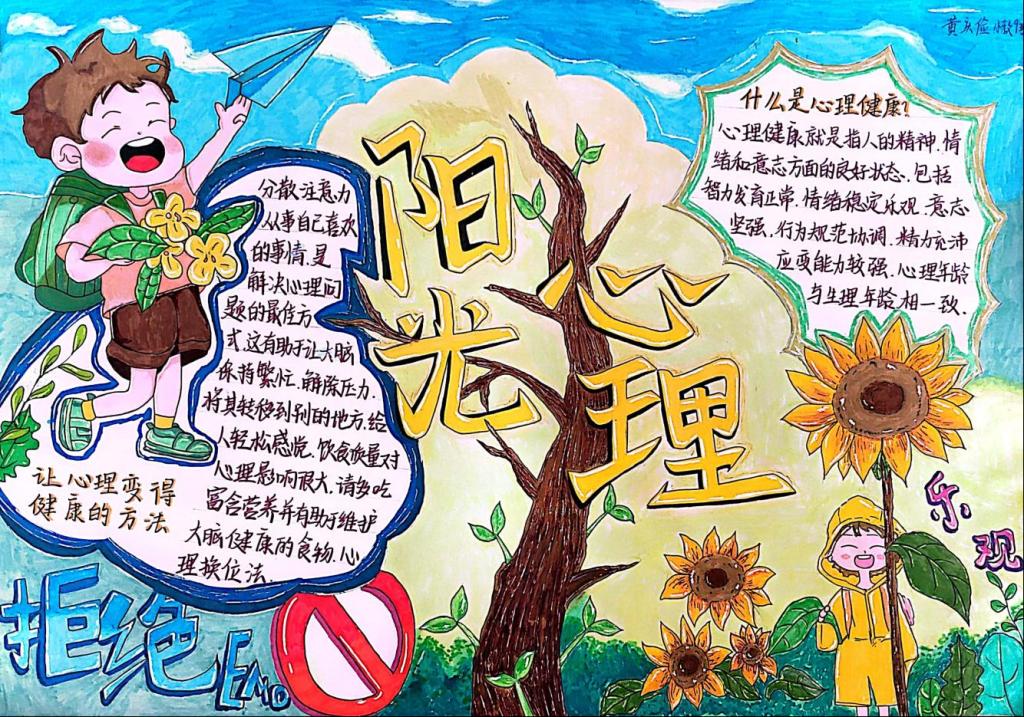 阳光
心理
什么是心理健康?
心理健康就是指人的精神.情
绪和意志方面的良好状态.包括
智力发育正常.情绪稳定乐观.意志
坚强.行为规范协调.精力充沛
应变能力较强.心理年龄
与生理年龄相一致.
分散注意力
从事自己喜欢
的事情.是
解决心理问
题的最佳方
式.这有助于让大脑
保持繁忙.解除压力.
将其转移到别的地方.给
人轻松感觉.饮食质量对
心理影响很大.请多吃
富含营养并有助于维护
大脑健康的食物.心
理换位法.
让心理变得
健康的方法
拒绝
EMO
乐观